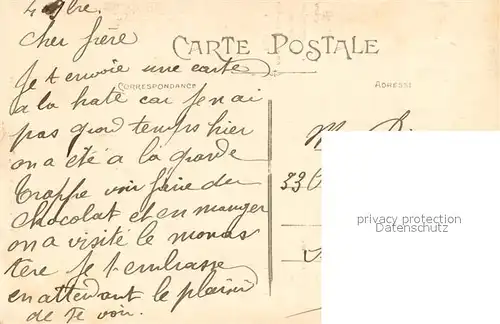 Cher frère
CARTE POSTALE
Je t envoie une carte
CORRESPONDANCE
ADRESSE
a la hate car je n ai
pas grand temps hier
M
on a été a la grande
33
trappe voir faire du
chocolat et en manger
privacy protection
Datenschutz
on a visité le monas
tère Je t embrasse
en attendant le plaisir
de te voir.